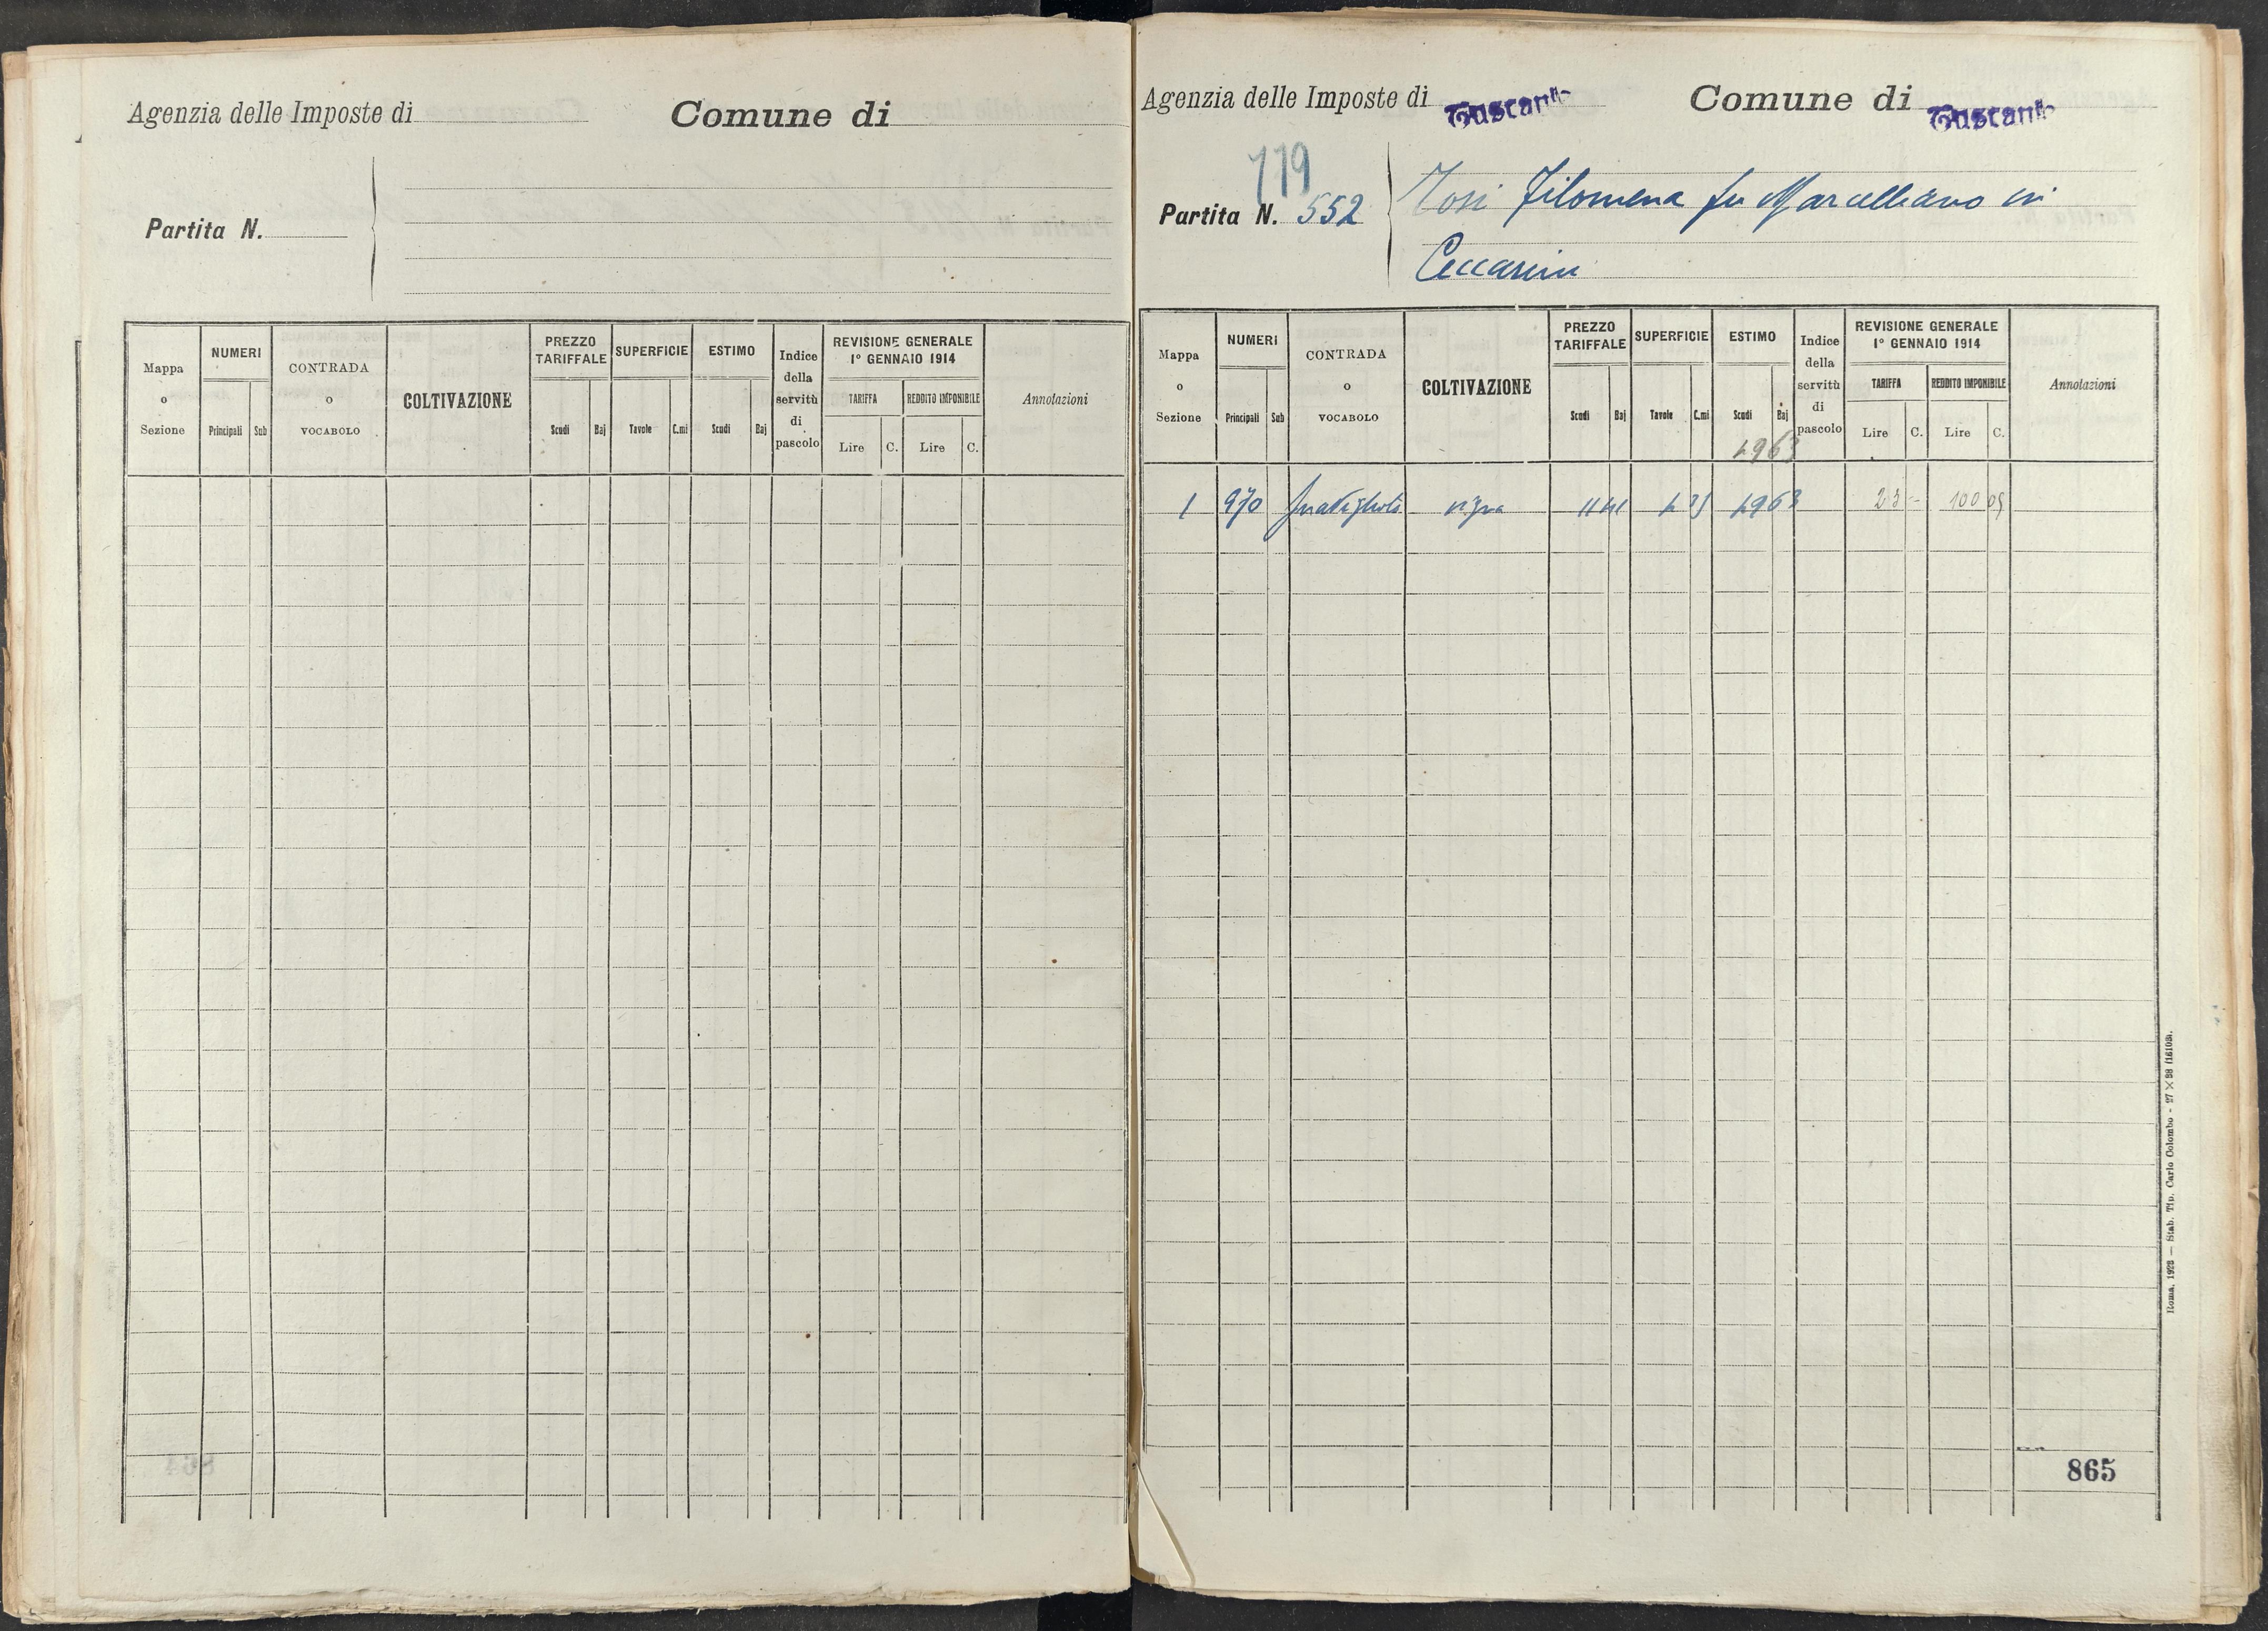 Agenzia delle Imposte di
Comune di
Partita N.
Mappa o Sezione
NUMERI
Principali Sub
CONTRADA o VOCABOLO
COLTIVAZIONE
PREZZO TARIFFALE
Scudi Baj
SUPERFICIE
Tavole C.mi
ESTIMO
Scudi Baj
Indice della servitù di pascolo
REVISIONE GENERALE
1° GENNAIO 1914
TARIFFA
Lire C.
REDDITO IMPONIBILE
Lire C.
Annotazioni
Agenzia delle Imposte di Tuscania
Comune di Tuscania
719
Partita N. 552
Tosi Filomena fu Marcelliano in
Ceccarini
Mappa o Sezione
NUMERI
Principali Sub
CONTRADA o VOCABOLO
COLTIVAZIONE
PREZZO TARIFFALE
Scudi Baj
SUPERFICIE
Tavole C.mi
ESTIMO
Scudi Baj
Indice della servitù di pascolo
REVISIONE GENERALE
1° GENNAIO 1914
TARIFFA
Lire C.
REDDITO IMPONIBILE
Lire C.
Annotazioni
1 970 vigna 23 - 100 05
865
Roma, 1928 — Stab. Tip. Carlo Colombo - 27 × 38 (16103).